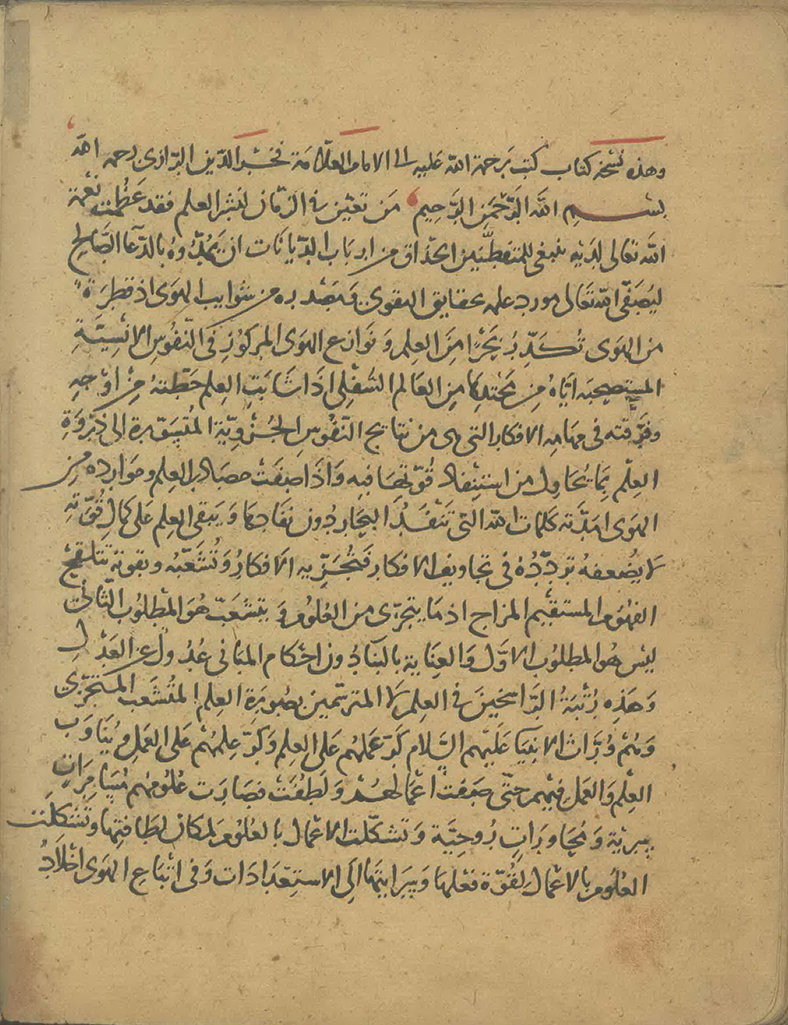 وهذه نسخة كتاب كتب برحمة الله عليه الى الامام العلامة فخر الدين الرازى رحمه الله
بسم الله الرحمن الرحيم من تعين فى الزمان لنشر العلم فقد عظمت نعمة
الله تعالى لديه ينبغى للمتفطنين الحذاق من ارباب الديانات ان يمدوه بالدعا الصالح
ليصفى الله تعالى مورد علمه بحقايق التقوى ومصدره من شوايب الهوى اذ قطرة
من الهوى تكدر بحرا من العلم ونوازع الهوى المركوز فى النفوس الانسية
المستصحبة اياه من محتدها من العالم السفلى اذا شابت العلم حطته من اوجه
وفرقته فى مهامه الافكار التى هى من نتايج النفوس الجزوية المتسورة الى ذروة
العلم بما تحاول من استنفاد قوتها فيه واذا صفت مصادر العلم وموارده من
الهوى امدته كلمات الله التى تنفد البحار دون نفادها ويبقى العلم على كمال قوته
لا يضعفه تردده فى تجاويف الافكار فتجزيه الافكار وتشعبه وبقوته تتلقح
الفهوم المستقيم المزاج اذ ما يتجزى من العلوم ويتشعب هو المطلوب الثانى
ليس هو المطلوب الاول والعناية بالبنا دون احكام المبانى عدول عن العدل
وهذه رتبة الراسخين فى العلم لا المترسمين بصورة العلم المتشعب المتجزى
وهم وراث الانبيا عليهم السلام كر عملهم على العلم وكر علمهم على العمل وتناوب
العلم والعمل فيهم حتى صفت اعمالهم ولطفت فصارت علومهم مسامرات
سرية ومحاورات روحية وتشكلت الاعمال بالعلوم لمكان لطافتها وتشكلت
العلوم بالاعمال لقوة فعلها وسرايتها الى الاستعدادات وفى اتباع الهوى اخلاد